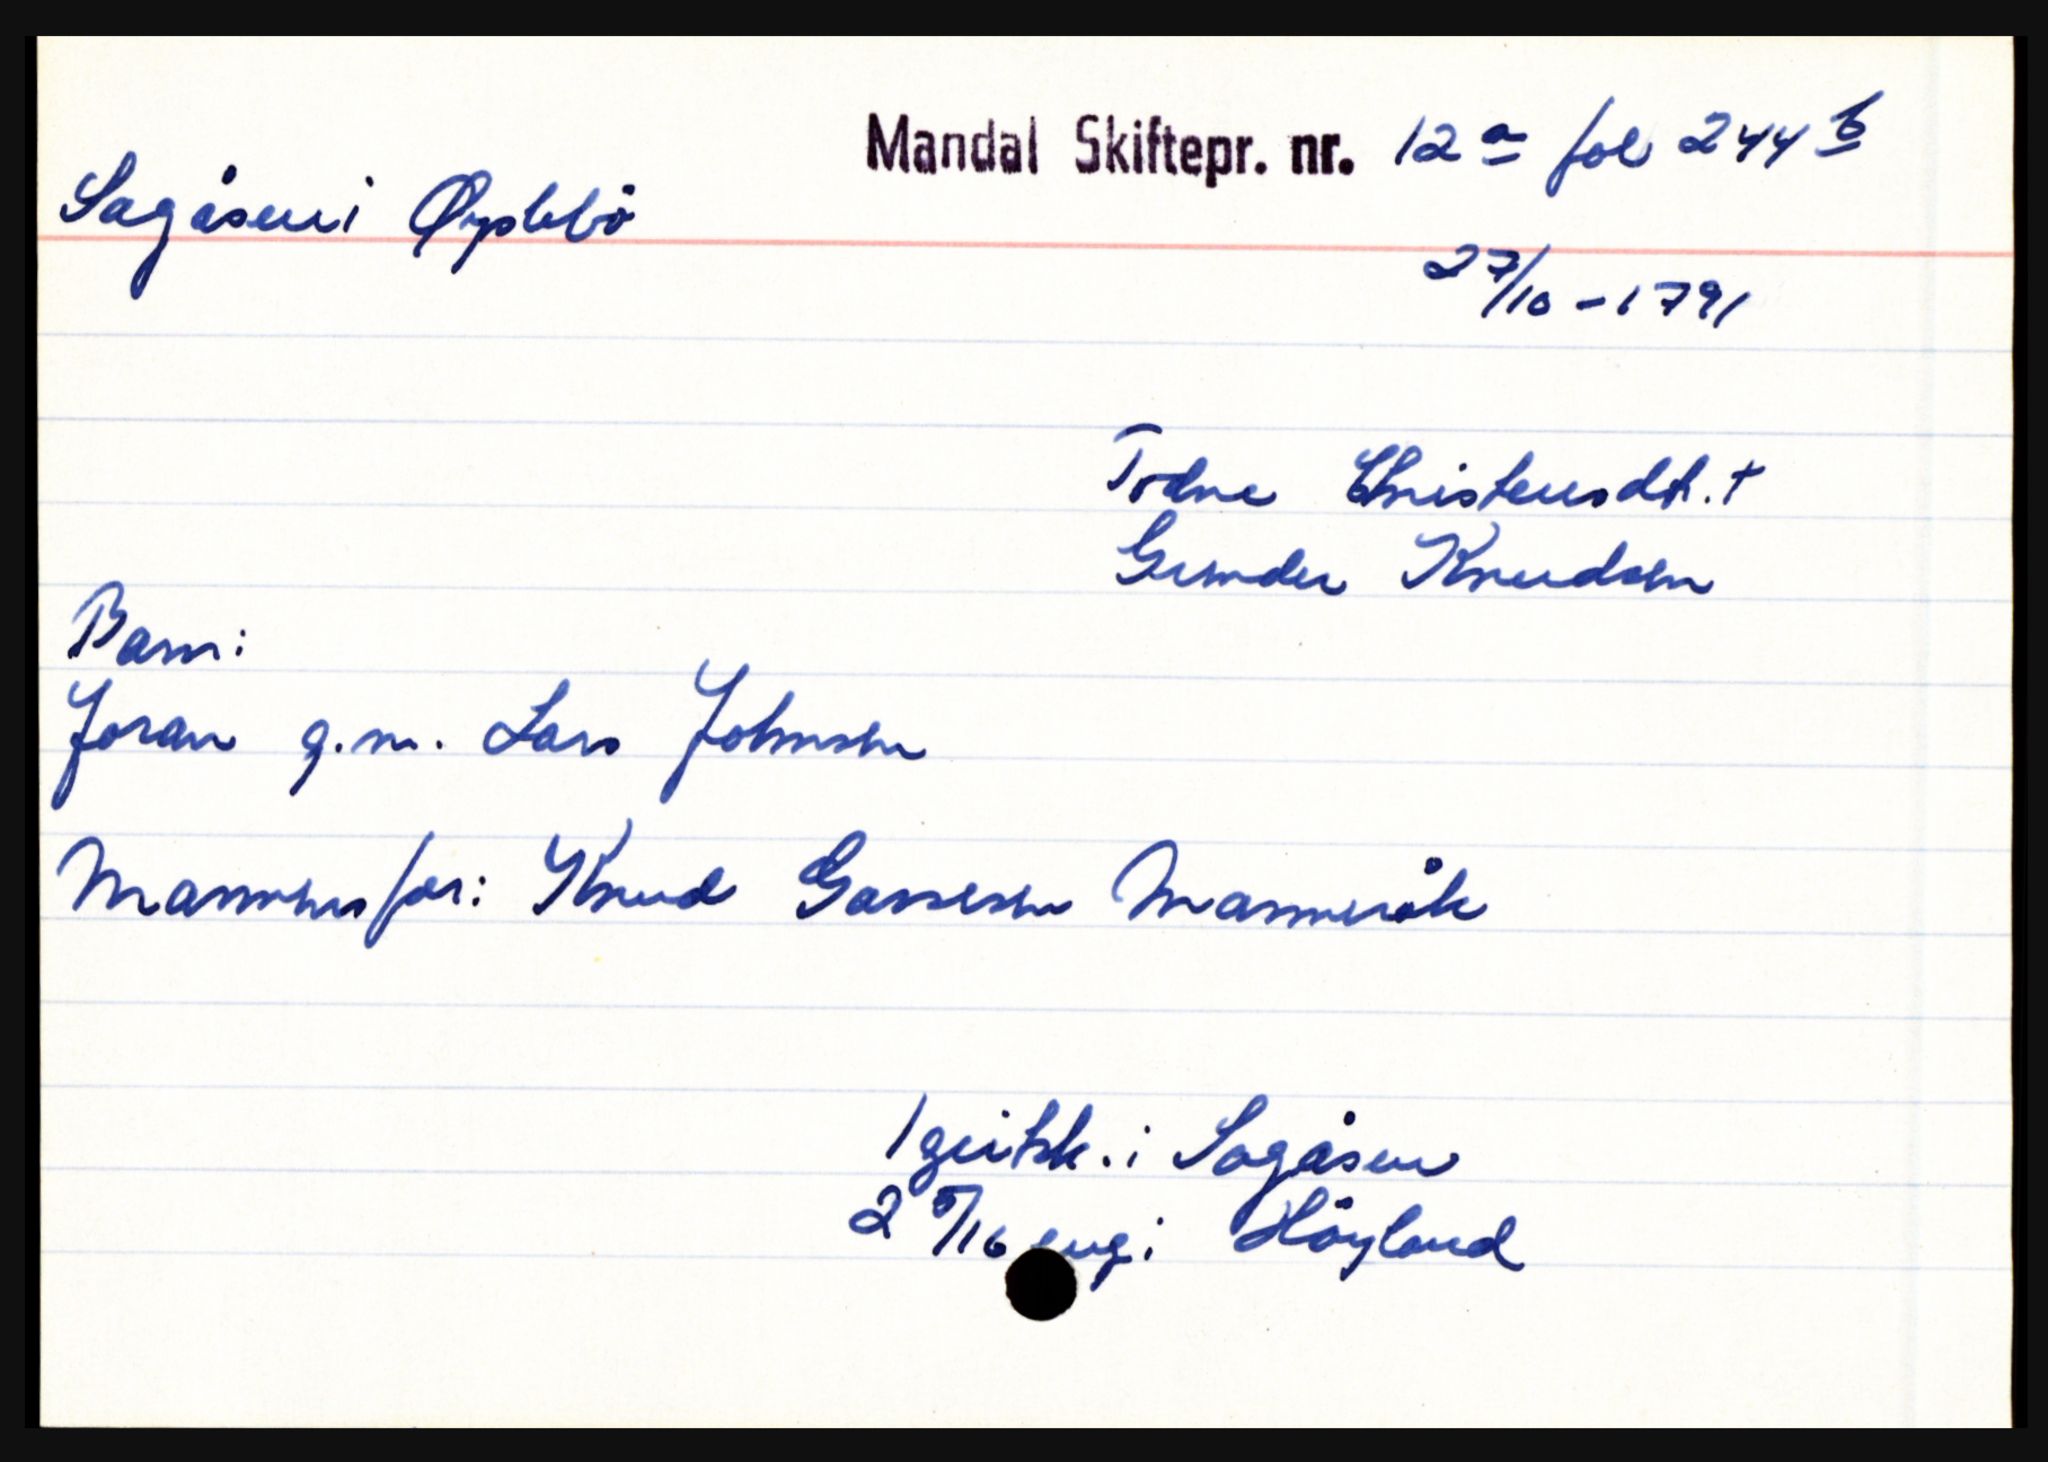 Mandal Skiftepr. nr. 12 a fol 244 b
Sagåsen i Øyslebö
27/10 - 1791
Todne Christensdt. †
Gunder Knudsen
Barn:
Joran g.m. Lars Johnsen
Mannens far: Knud Gassesen Manneråk
1 geitsk. i Sagåsen
2 5/16 eng i Höyland